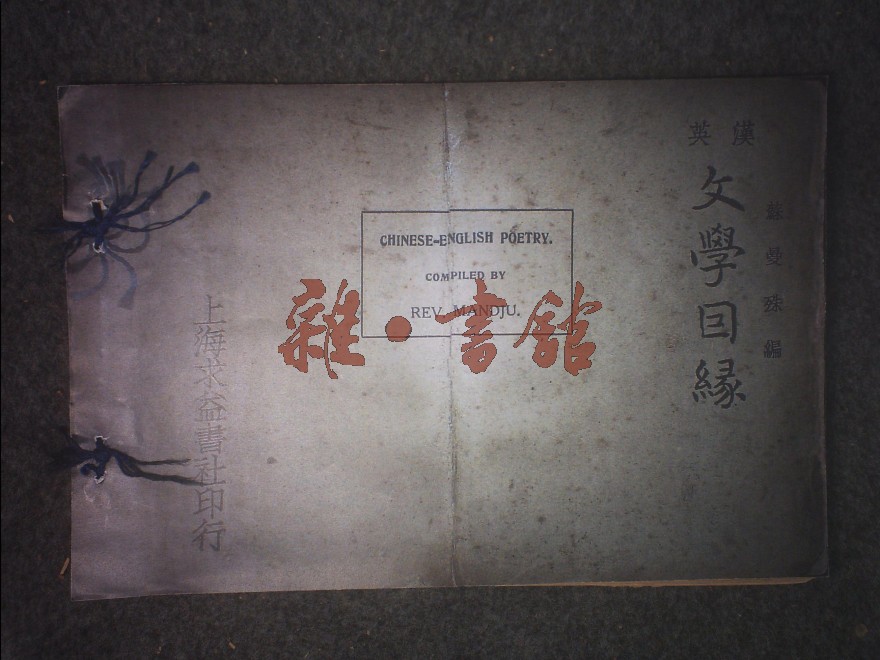 漢英
文學囙緣
蘇曼殊編
CHINESE-ENGLISH POETRY.
COMPILED BY
REV. MANDJU.
雜·書館
上海求益書社印行